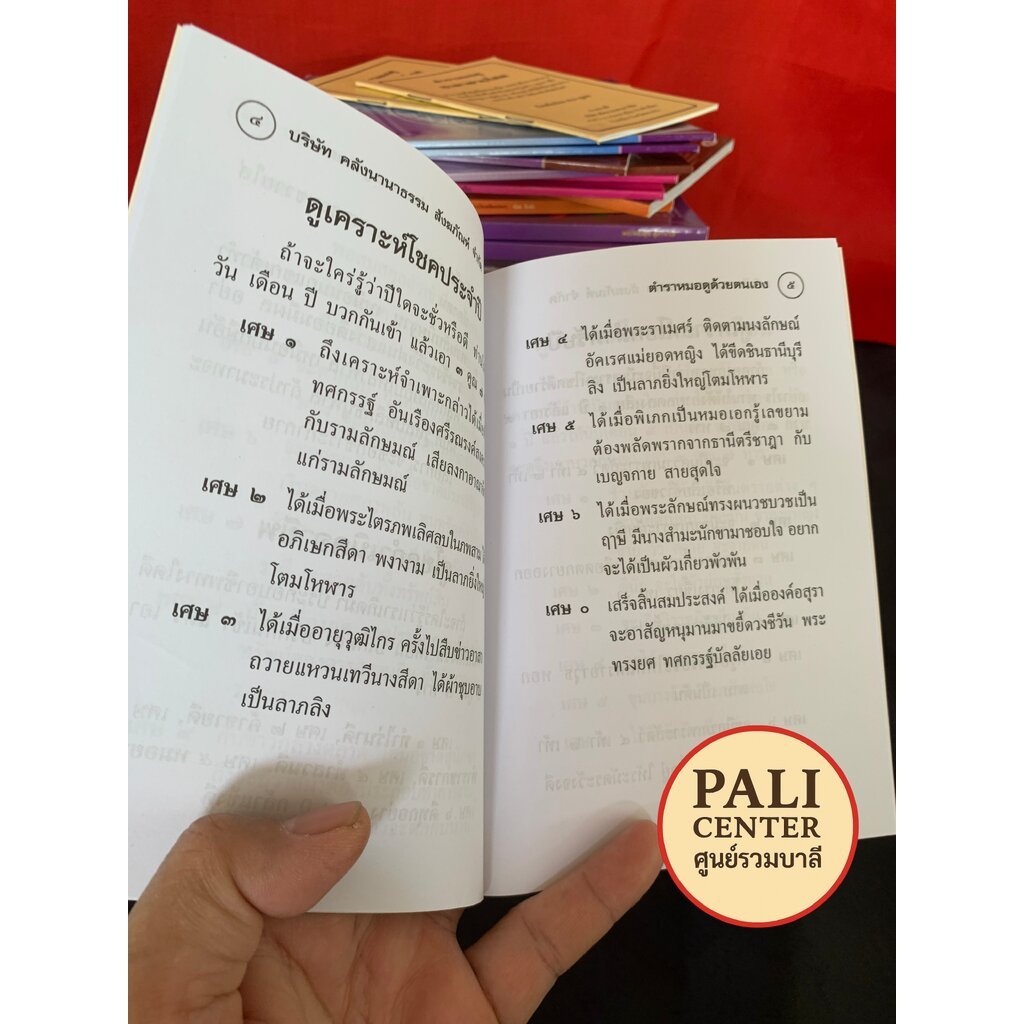 ๔
บริษัท คลังนานาธรรม สังฆภัณฑ์
ดูเคราะห์โชคประจำปี
ถ้าจะใคร่รู้ว่าปีใดจะชั่วหรือดี
วัน เดือน ปี บวกกันเข้า แล้วเอา ๓ คูณ
เศษ ๑ ถึงเคราะห์จำเพาะกล่าวได้เมื่อ
ทศกรรฐ์ อันเรืองศรีรณรงค์
กับรามลักษมณ์ เสียลงกา
แก่รามลักษมณ์
เศษ ๒ ได้เมื่อพระไตรภพเลิศลบในภพสาม
อภิเษกสีดา พงางาม เป็นลาภยิ่งใหญ่
โตมโหฬาร
เศษ ๓ ได้เมื่ออายุวุฒิไกร ครั้งไปสืบข่าว
ถวายแหวนเทวีนางสีดา ได้ผ้าชุบอาบ
เป็นลาภลิง
ตำราหมอดูด้วยตนเอง ๕
เศษ ๔ ได้เมื่อพระราเมศร์ ติดตามนงลักษณ์
อัคเรศแม่ยอดหญิง ได้ขีดชินธานีบุรี
ลิง เป็นลาภยิ่งใหญ่โตมโหฬาร
เศษ ๕ ได้เมื่อพิเภกเป็นหมอเอกรู้เลขยาม
ต้องพลัดพรากจากธานีตรีชาฎา กับ
เบญจกาย สายสุดใจ
เศษ ๖ ได้เมื่อพระลักษณ์ทรงผนวชบวชเป็น
ฤๅษี มีนางสำมะนักขามาชอบใจ อยาก
จะได้เป็นผัวเกี่ยวพัวพัน
เศษ ๐ เสร็จสิ้นสมประสงค์ ได้เมื่อองค์อสุรา
จะอาสัญหนุมานมาขยี้ดวงชีวัน พระ
ทรงยศ ทศกรรฐ์บัลลัยเอย
PALI
CENTER
ศูนย์รวมบาลี